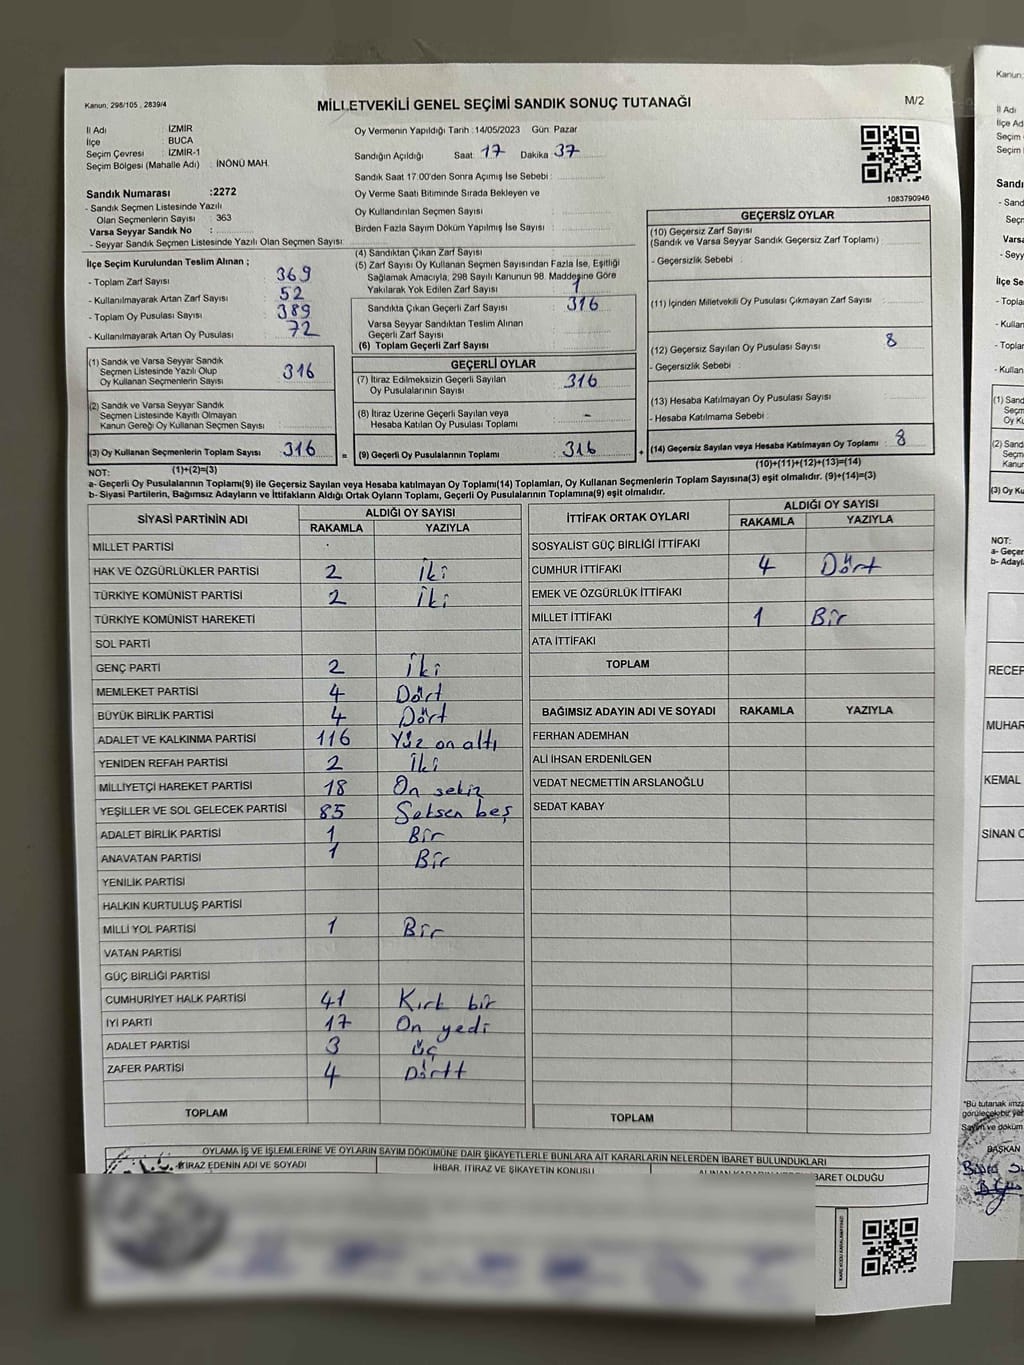 Kanun; 298/105 , 2839/4
MİLLETVEKİLİ GENEL SEÇİMİ SANDIK SONUÇ TUTANAĞI
M/2
İl Adı : İZMİR
İlçe : BUCA
Seçim Çevresi : İZMİR-1
Seçim Bölgesi (Mahalle Adı) : İNÖNÜ MAH.
Sandık Numarası :2272
- Sandık Seçmen Listesinde Yazılı
Olan Seçmenlerin Sayısı : 363
Varsa Seyyar Sandık No :
- Seyyar Sandık Seçmen Listesinde Yazılı Olan Seçmen Sayısı:
Oy Vermenin Yapıldığı Tarih :14/05/2023 Gün: Pazar
Sandığın Açıldığı Saat: 17 Dakika: 37
Sandık Saat 17:00'den Sonra Açımış İse Sebebi :
Oy Verme Saati Bitiminde Sırada Bekleyen ve
Oy Kullandırılan Seçmen Sayısı :
Birden Fazla Sayım Döküm Yapılmış İse Sayısı :
1083790946
İlçe Seçim Kurulundan Teslim Alınan ;
- Toplam Zarf Sayısı : 369
- Kullanılmayarak Artan Zarf Sayısı : 52
- Toplam Oy Pusulası Sayısı : 389
- Kullanılmayarak Artan Oy Pusulası : 72
(1) Sandık ve Varsa Seyyar Sandık
Seçmen Listesinde Yazılı Olup
Oy Kullanan Seçmenlerin Sayısı : 316
(2) Sandık ve Varsa Seyyar Sandık
Seçmen Listesinde Kayıtlı Olmayan
Kanun Gereği Oy Kullanan Seçmen Sayısı :
(3) Oy Kullanan Seçmenlerin Toplam Sayısı : 316
(4) Sandıktan Çıkan Zarf Sayısı :
(5) Zarf Sayısı Oy Kullanan Seçmen Sayısından Fazla İse, Eşitliği
Sağlamak Amacıyla, 298 Sayılı Kanunun 98. Maddesine Göre
Yakılarak Yok Edilen Zarf Sayısı : 1
Sandıkta Çıkan Geçerli Zarf Sayısı : 316
Varsa Seyyar Sandıktan Teslim Alınan
Geçerli Zarf Sayısı :
(6) Toplam Geçerli Zarf Sayısı :
GEÇERLİ OYLAR
(7) İtiraz Edilmeksizin Geçerli Sayılan
Oy Pusulalarının Sayısı : 316
(8) İtiraz Üzerine Geçerli Sayılan veya
Hesaba Katılan Oy Pusulası Toplamı : -
= (9) Geçerli Oy Pusulalarının Toplamı : 316
GEÇERSİZ OYLAR
(10) Geçersiz Zarf Sayısı
(Sandık ve Varsa Seyyar Sandık Geçersiz Zarf Toplamı) :
- Geçersizlik Sebebi :
(11) İçinden Milletvekili Oy Pusulası Çıkmayan Zarf Sayısı :
(12) Geçersiz Sayılan Oy Pusulası Sayısı : 8
- Geçersizlik Sebebi :
(13) Hesaba Katılmayan Oy Pusulası Sayısı :
- Hesaba Katılmama Sebebi :
+ (14) Geçersiz Sayılan veya Hesaba Katılmayan Oy Toplamı : 8
NOT: (1)+(2)=(3) (10)+(11)+(12)+(13)=(14)
a- Geçerli Oy Pusulalarının Toplamı(9) ile Geçersiz Sayılan veya Hesaba katılmayan Oy Toplamı(14) Toplamları, Oy Kullanan Seçmenlerin Toplam Sayısına(3) eşit olmalıdır. (9)+(14)=(3)
b- Siyasi Partilerin, Bağımsız Adayların ve İttifakların Aldığı Ortak Oyların Toplamı, Geçerli Oy Pusulalarının Toplamına(9) eşit olmalıdır.
SİYASİ PARTİNİN ADI ALDIĞI OY SAYISI
RAKAMLA YAZIYLA
MİLLET PARTİSİ
HAK VE ÖZGÜRLÜKLER PARTİSİ 2 İki
TÜRKİYE KOMÜNİST PARTİSİ 2 İki
TÜRKİYE KOMÜNİST HAREKETİ
SOL PARTİ
GENÇ PARTİ 2 İki
MEMLEKET PARTİSİ 4 Dört
BÜYÜK BİRLİK PARTİSİ 4 Dört
ADALET VE KALKINMA PARTİSİ 116 Yüz on altı
YENİDEN REFAH PARTİSİ 2 İki
MİLLİYETÇİ HAREKET PARTİSİ 18 On sekiz
YEŞİLLER VE SOL GELECEK PARTİSİ 85 Seksen beş
ADALET BİRLİK PARTİSİ 1 Bir
ANAVATAN PARTİSİ 1 Bir
YENİLİK PARTİSİ
HALKIN KURTULUŞ PARTİSİ
MİLLİ YOL PARTİSİ 1 Bir
VATAN PARTİSİ
GÜÇ BİRLİĞİ PARTİSİ
CUMHURİYET HALK PARTİSİ 41 Kırk bir
İYİ PARTİ 17 On yedi
ADALET PARTİSİ 3 üç
ZAFER PARTİSİ 4 Dörtt
TOPLAM
İTTİFAK ORTAK OYLARI ALDIĞI OY SAYISI
RAKAMLA YAZIYLA
SOSYALİST GÜÇ BİRLİĞİ İTTİFAKI
CUMHUR İTTİFAKI 4 Dört
EMEK VE ÖZGÜRLÜK İTTİFAKI
MİLLET İTTİFAKI 1 Bir
ATA İTTİFAKI
TOPLAM
BAĞIMSIZ ADAYIN ADI VE SOYADI RAKAMLA YAZIYLA
FERHAN ADEMHAN
ALİ İHSAN ERDENİLGEN
VEDAT NECMETTİN ARSLANOĞLU
SEDAT KABAY
TOPLAM
OYLAMA İŞ VE İŞLEMLERİNE VE OYLARIN SAYIM DÖKÜMÜNE DAİR ŞİKAYETLERLE BUNLARA AİT KARARLARIN NELERDEN İBARET BULUNDUKLARI
İTİRAZ EDENİN ADI VE SOYADI İHBAR, İTİRAZ VE ŞİKAYETİN KONUSU İBARET OLDUĞU
Kanun;
İl Adı
İlçe Ad
Seçim
Seçim
Sandı
- Sand
Seçn
Varsa
- Seyy
İlçe Se
- Topla
- Kullan
- Topla
- Kullan
(1) Sand
Seçm
Oy Ku
(2) Sand
Seçm
Kanun
(3) Oy Ku
NOT:
a- Geçer
b- Adayl
RECEP
MUHAR
KEMAL
SİNAN O
"Bu tutanak imza
görülecebir yer
Sayım ve döküm
BAŞKAN